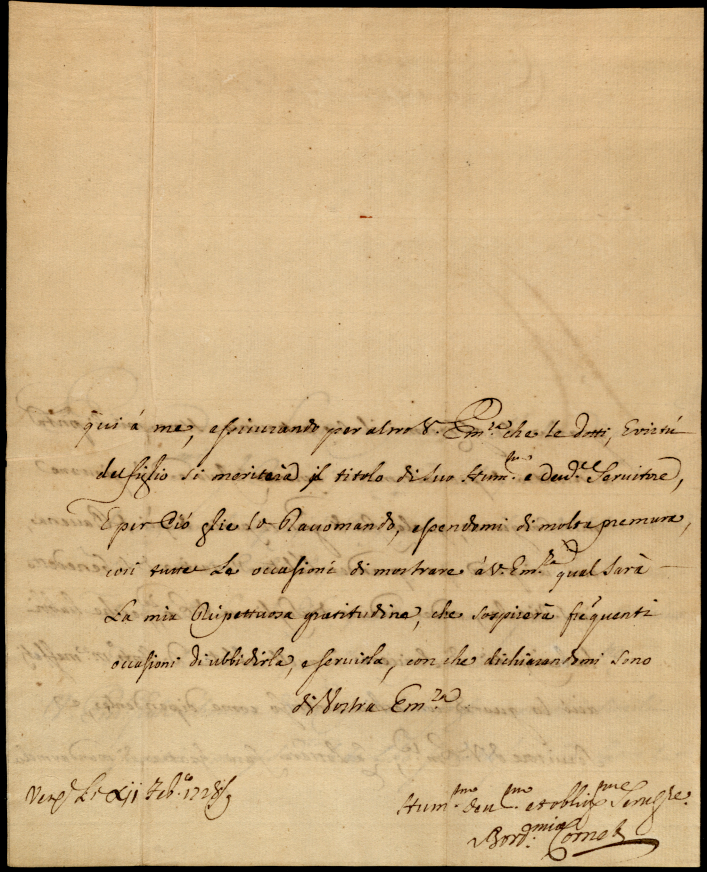 qui à me, assicurando per altro V. Em.za che le Dotti, e virtù
del figlio si meriterà il titolo di suo Hum.mo e deu.mo Servitore,
E per Ciò glie lo Raccomando, essendomi di molta premura,
così tutte Le occasioni di mostrare à V. Em.za qual sarà
La mia Rispettuosa gratitudine, che sospirerà frequenti
occasioni di ubbidirla, e servirla, con che dichiarandomi sono
di Vostra Em.za
Ven.a Li XII Feb.o 1728
Hum.mo deu.mo et obblig.mo Seru.re
Cornel